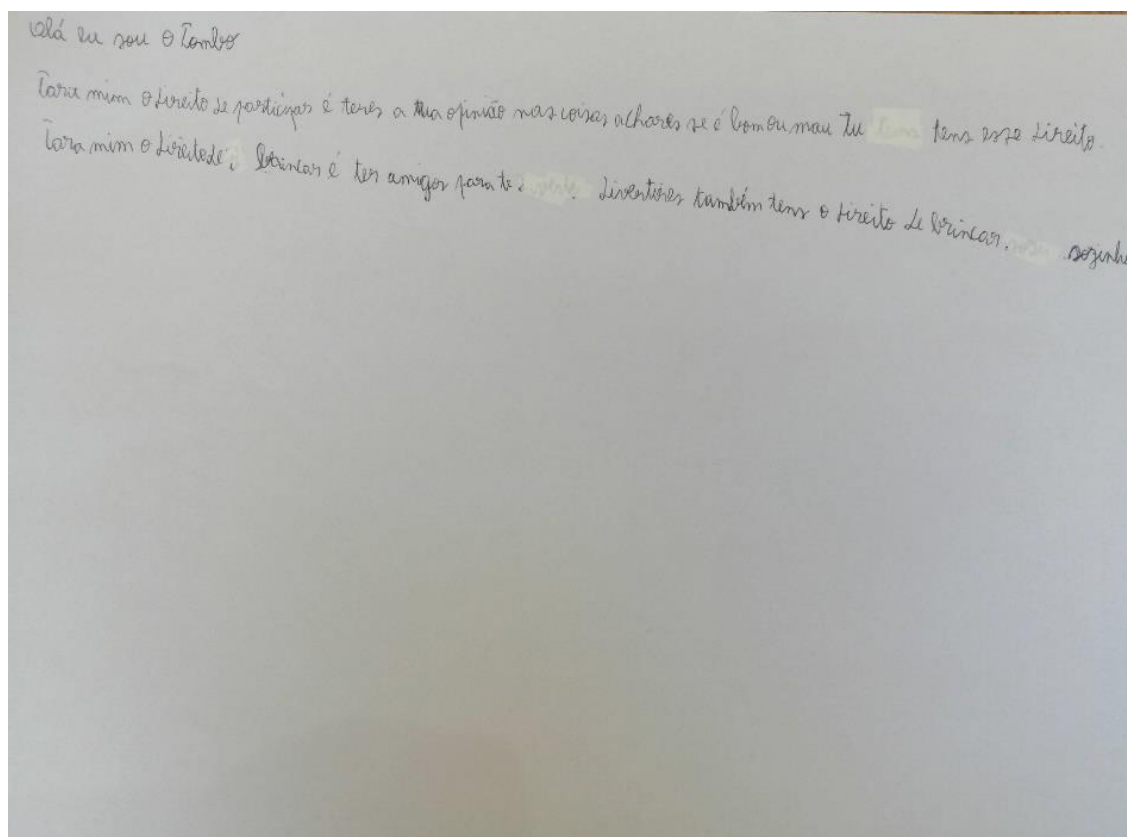 Olá eu sou o Tombo
Para mim o direito de participar é teres a tua opinião nas coisas achares se é bom ou mau tu tens esse direito.
Para mim o direito de brincar é ter amigos para te divertires também tens o direito de brincar sozinho